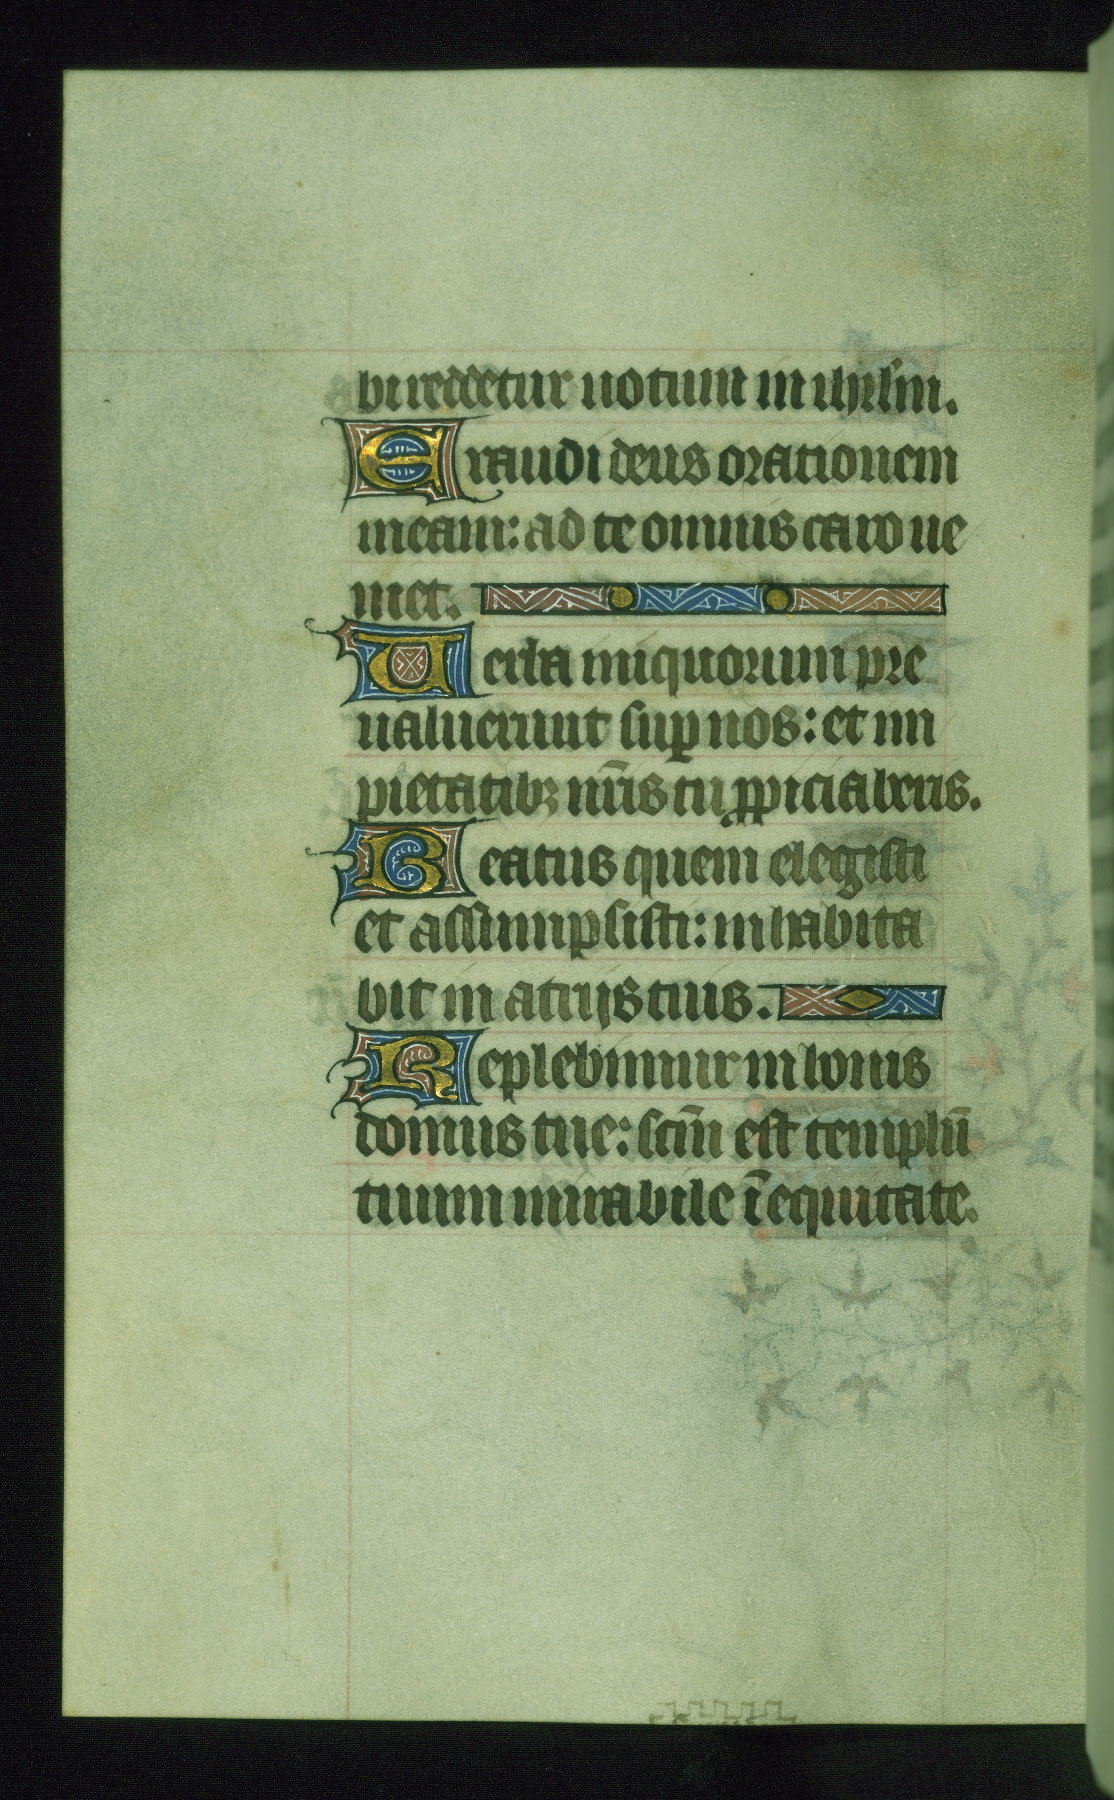 bi reddetur uotum in ihrlm.
Exaudi deus orationem
meam: ad te omnis caro ue
niet.
Uerba iniquorum pre
ualuerunt sup nos: et im
pietatibꝫ nr̄is tu ꝓpiciaberis.
Beatus quem elegisti
et assumpsisti: inhabita
bit in atrijs tuis.
Replebimur in bonis
domus tue: scm̄ est templū
tuum mirabile ī equitate.